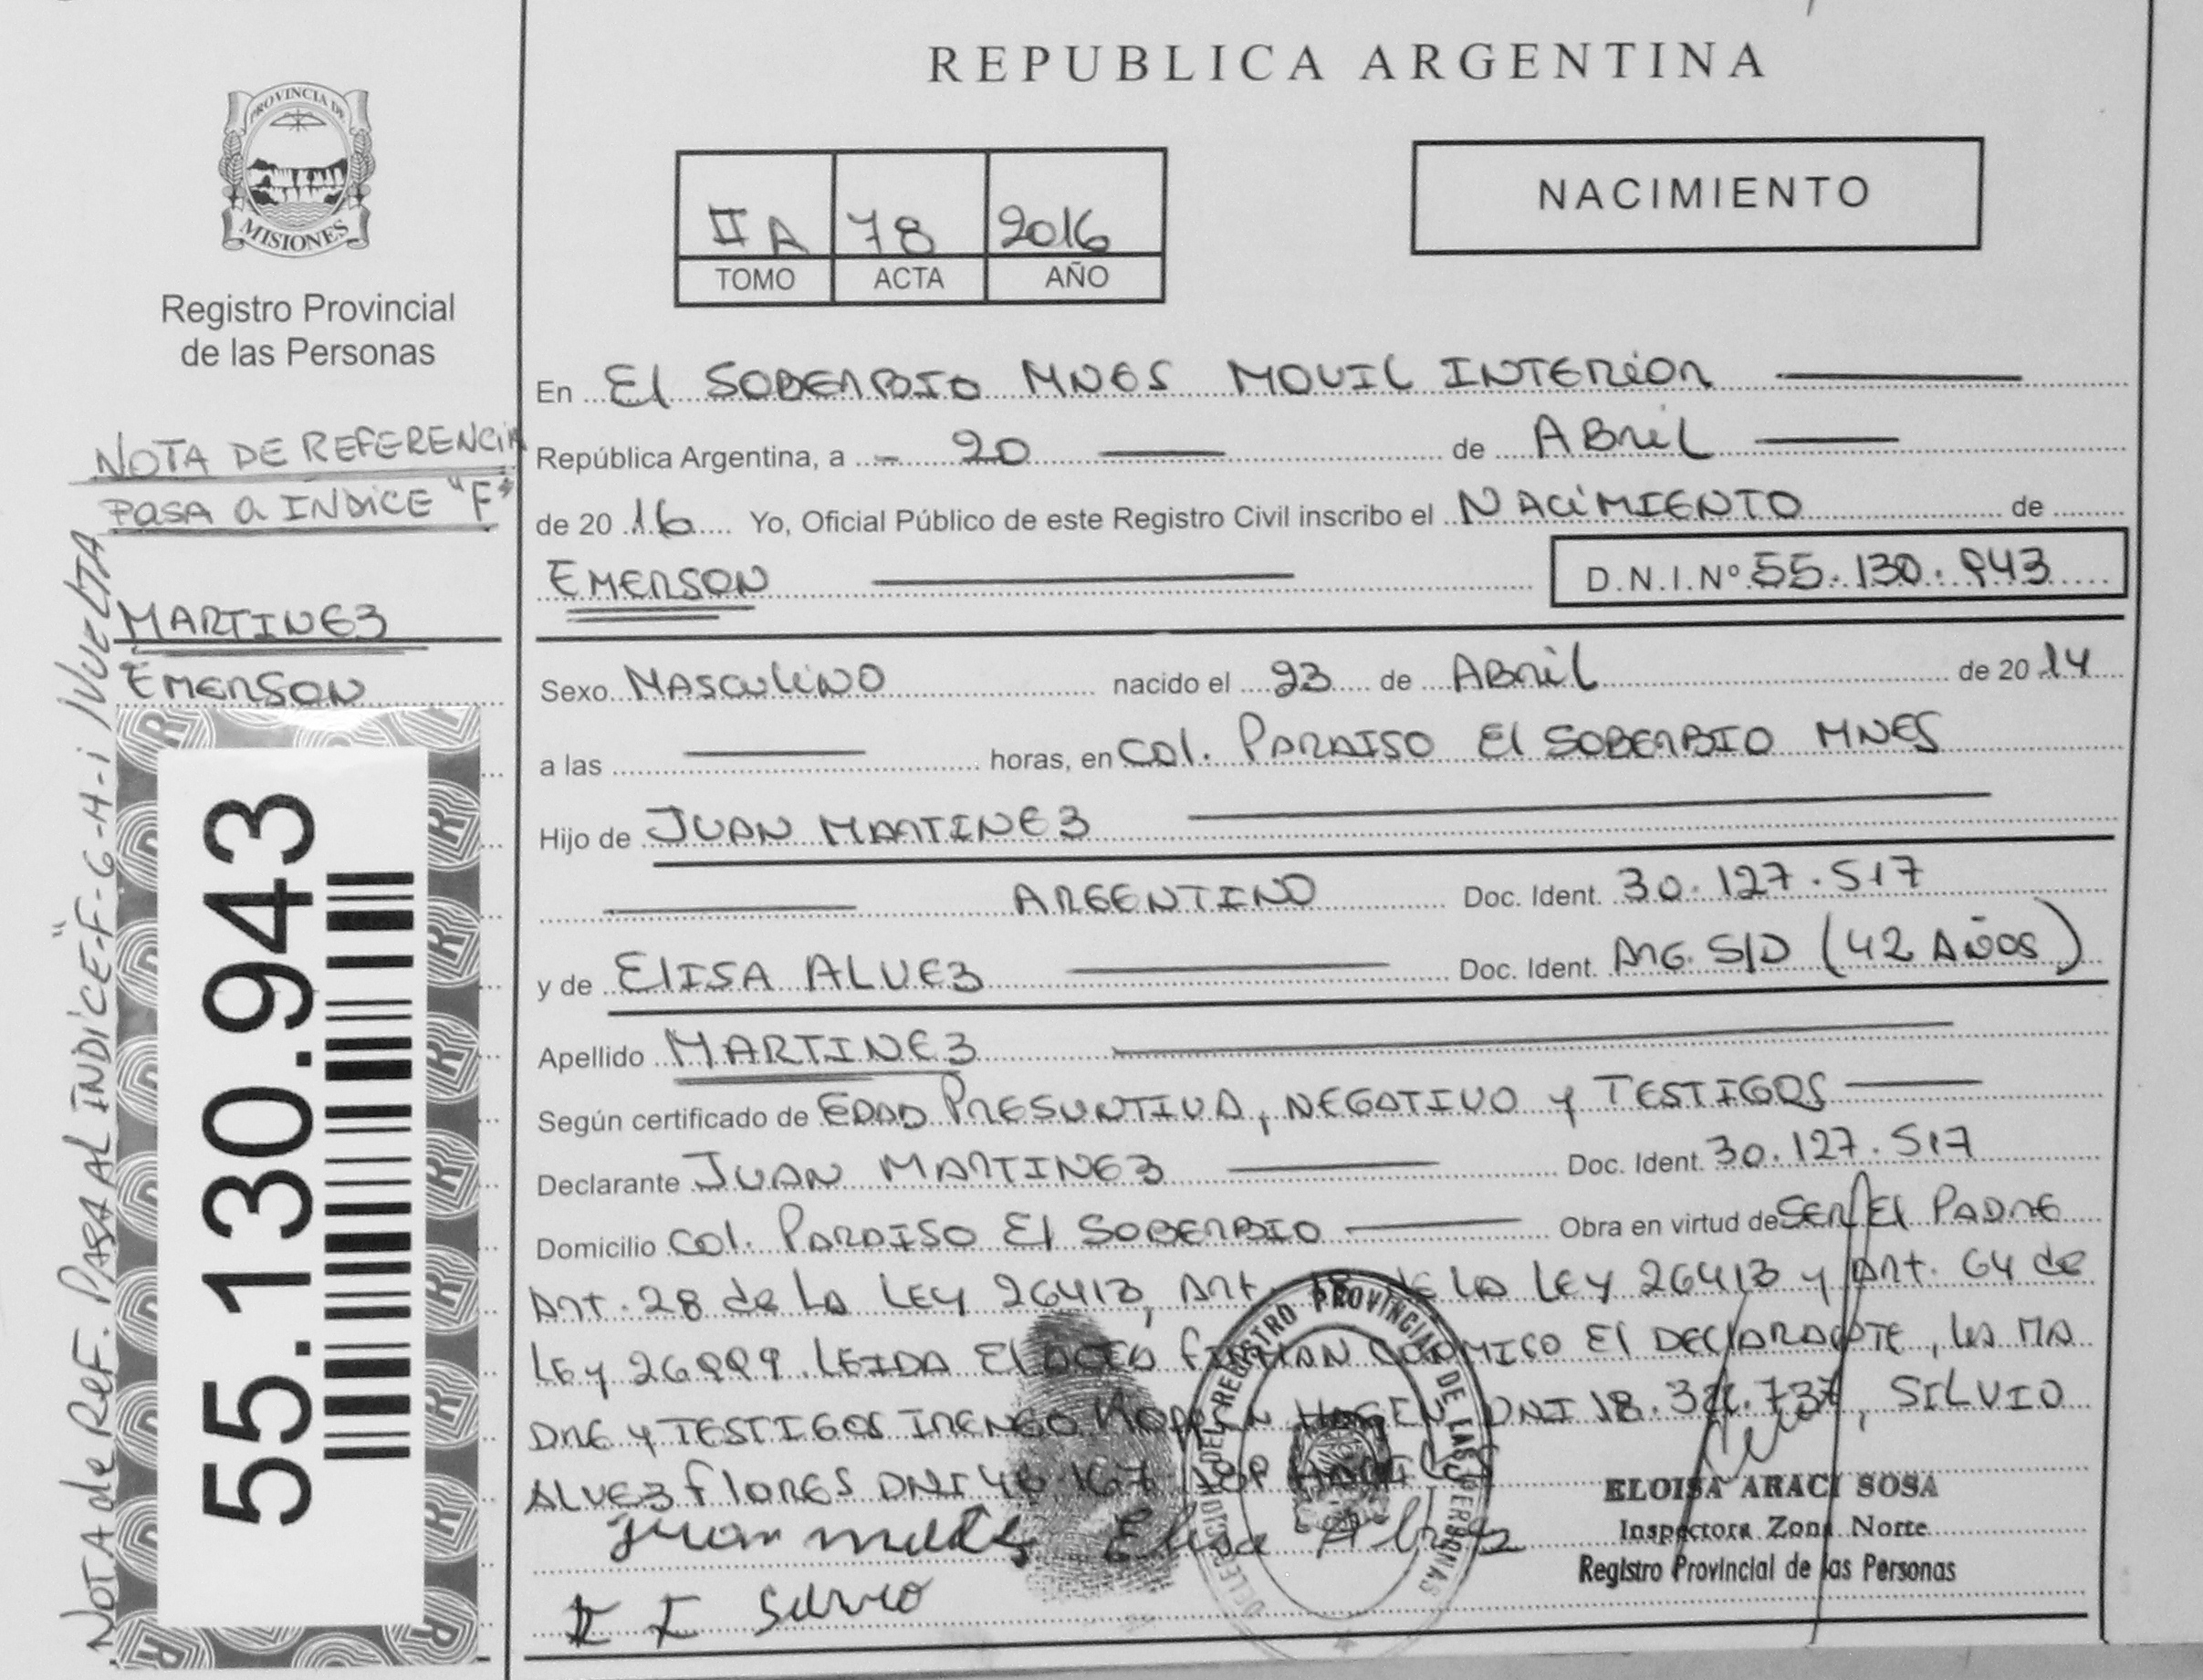 REPUBLICA ARGENTINA
PROVINCIA DE
MISIONES
Registro Provincial
de las Personas
II A 78 2016
TOMO ACTA AÑO
NACIMIENTO
En El SOBERBIO MNES MOVIL INTERiOR
República Argentina, a 20 de ABRIL
de 20 16 Yo, Oficial Público de este Registro Civil inscribo el NACiMIENTO de
EMERSON D.N.I.Nº 55.130.943
NOTA DE REFERENCIA
PASA a INDICE "F"
MARTINEZ
EMERSON
NOTA de REF. PASA AL INDICE "F-G-H-i /VUELTA
55.130.943
Sexo MASCULINO nacido el 23 de ABRIL de 20 14
a las horas, en COL. PARAISO El SOBERBIO MNES
Hijo de JUAN MARTINEZ
ARGENTINO Doc. Ident. 30.127.517
y de ELISA ALVEZ Doc. Ident. ARG. S/D (42 AÑOS)
Apellido MARTINEZ
Según certificado de EDAD PRESUNTIVA, NEGATIVO y TESTIGOS
Declarante JUAN MARTINEZ Doc. Ident. 30.127.517
Domicilio COL. PARAISO El SOBERBIO Obra en virtud de SER El PADRE
ART. 28 de LA LEY 26413, ART. DE LA LEY 26413 y ART. 64 de
LEY 26999. LEIDA El ACTA FIRMAN CONMIGO El DECLARANTE, LA MA
DRE y TESTIGOS IRENEO HOGEN DNI 18. .737, SILVIO
ALVEZ FLORES DNI
Elisa
Silvio
DEL REGISTRO PROVINCIAL DE LAS PERSONAS
ELOISA ARACI SOSA
Inspectora Zona Norte
Registro Provincial de las Personas